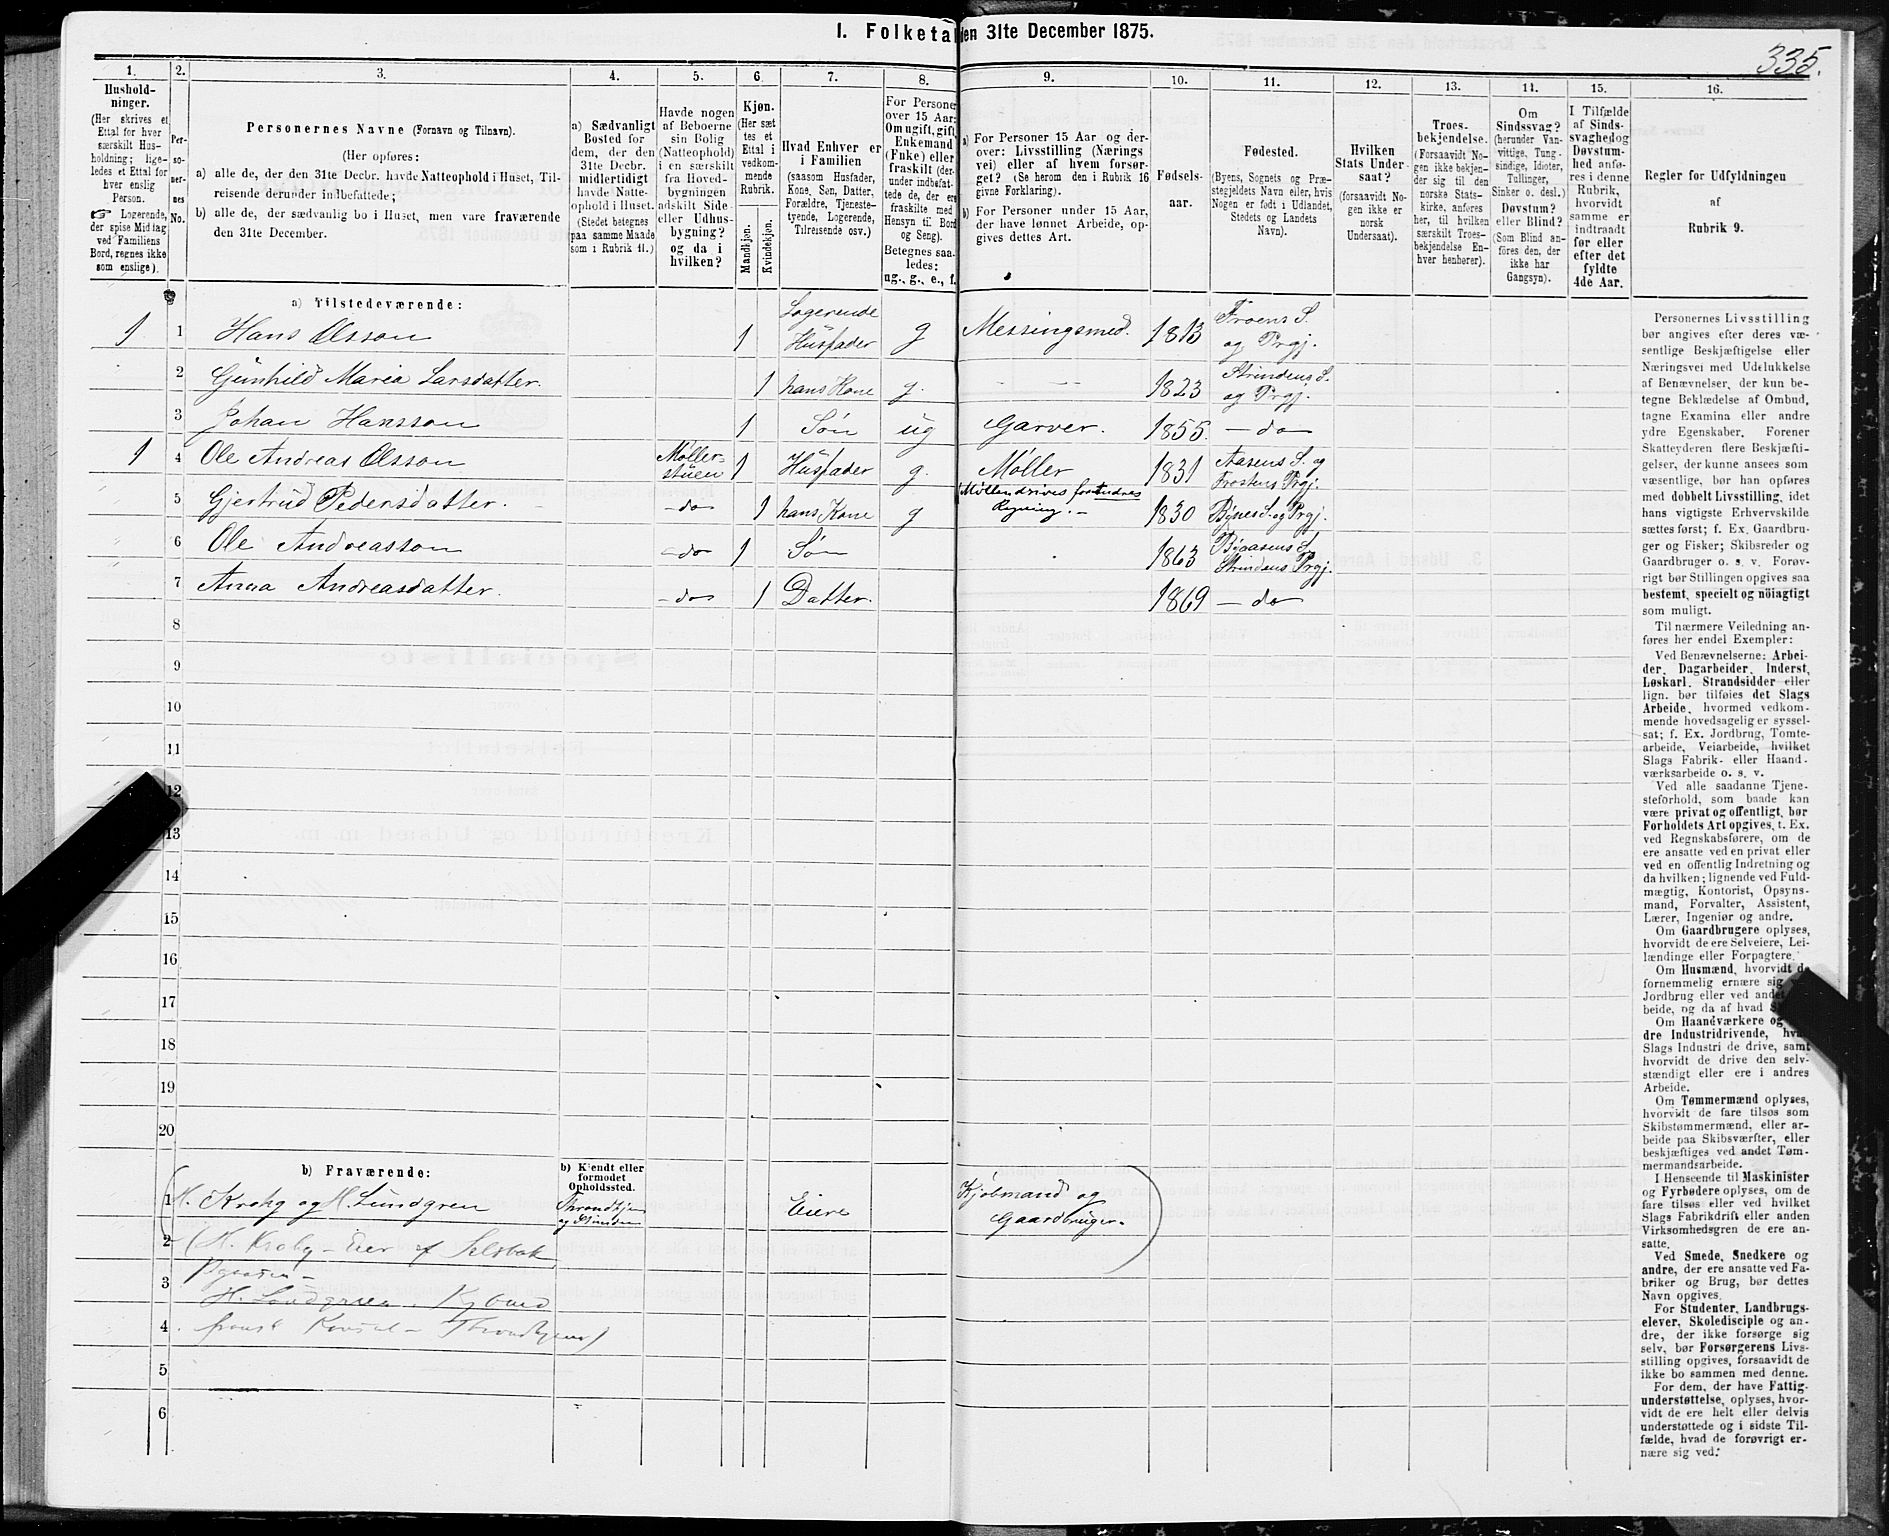 I. Folketal den 31te December 1875.
335.
1. 2. 3. 4. 5. 6. 7. 8. 9. 10. 11. 12. 13. 14. 15. 16.
Hushold-
ninger.
(Her skrives et
Ettal for hver
særskilt Hus-
holdning; lige-
ledes et Ettal for
hver enslig
Person.
☞ Logerende,
der spise Middag
ved Familiens
Bord, regnes ikke
som enslige).
Per-
so-
ner-
nes
No.
Personernes Navne (Fornavn og Tilnavn).
(Her opføres:
a) alle de, der den 31te Decbr. havde Natteophold i Huset, Til-
reisende derunder indbefattede;
b) alle de, der sædvanlig bo i Huset, men vare fraværende
den 31te December.
a) Sædvanligt
Bosted for
dem, der den
31te Decbr.
midlertidigt
havde Natte-
ophold i Huset.
(Stedet betegnes
paa samme Maade
som i Rubrik 11.)
Havde nogen
af Beboerne
sin Bolig
(Natteophold)
i en særskilt
fra Hoved-
bygningen
adskilt Side-
eller Udhus-
bygning?
og da i
hvilken?
Kjøn.
(Her sæt-
tes et
Ettal i
vedkom-
mende
Rubrik.
Mandkjøn.
Kvindekjøn.
Hvad Enhver er
i Familien
(saasom Husfader,
Kone, Søn, Datter,
Forældre, Tjeneste-
tyende, Logerende,
Tilreisende osv.)
For Personer
over 15 Aar:
Om ugift, gift,
Enkemand
(Enke) eller
fraskilt (der-
under indbefat-
tede de, der ere
fraskilte med
Hensyn til Bord
og Seng).
Betegnes saa-
ledes:
ug., g., e., f.
a) For Personer 15 Aar og der-
over: Livsstilling (Nærings-
vei) eller af hvem forsør-
get? (Se herom den i Rubrik 16
givne Forklaring).
b) For Personer under 15 Aar,
der have lønnet Arbeide, op-
gives dettes Art.
Fødsels-
aar.
Fødested.
(Byens, Sognets og Præ-
stegjeldets Navn eller, hvis
Nogen er født i Udlandet,
Stedets og Landets
Navn).
Hvilken
Stats Under-
saat?
(forsaavidt No-
gen ikke er
norsk
Undersaat).
Troes-
bekjendelse.
(Forsaavidt No-
gen ikke bekjen-
der sig til den
norske Stats-
kirke, anføres
her, til hvilken
særskilt Troes-
bekjendelse En-
hver henhører).
Om
Sindssvag?
(herunder Van-
vittige, Tung-
sindige, Idioter,
Tullinger,
Sinker o. desl.)
Døvstum?
eller Blind?
(Som Blind an-
føres den, der
ikke har
Gangsyn).
I Tilfælde
af Sinds-
svaghed og
Døvstum-
hed anfø-
res i denne
Rubrik,
hvorvidt
samme er
indtraadt
før eller
efter det
fyldte
4de Aar.
Regler for Udfyldningen
af
Rubrik 9.
a) Tilstedeværende:
1 1 Hans Olsson 1 Logerende Husfader g Messingsmed. 1813 Froens S. og Prgj.
2 Gunhild Maria Larsdatter. 1 hans Kone g. — — 1823 Strindens S. og Prgj.
3 Johan Hansson 1 Søn ug Garver. 1855. — do
1 4 Ole Andreas Olsson Møller-stuen 1 Husfader g. Møller 1831 Aasens S. og Frostens Prgj.
5 Gjertrud Pedersdatter. - do 1 hans Kone g (Møllen drives for Andres Regning. - 1830 Bynes S. og Prgj.
6 Ole Andreasson - do 1 Søn 1863 Byaasens S. Strindens Prgj.
7 Anna Andreasdatter. - do 1 Datter. 1869 — do
8
9
10
11
12
13
14
15
16
17
18
19
20
b) Fraværende:
b) Kjendt eller
formodet
Opholdssted.
1 H. Krohg og H. Lundgren Throndhjem og Strinden Eiere Kjøbmand og Gaardbruger.
2 (H. Krohg - Eier af Selsbak
Byaasen -
3 H. Lundgreen. Kjbmd
4 fransk Konsul - Throndhjem)
5
6
Personernes Livsstilling
bør angives efter deres væ-
sentlige Beskjæftigelse eller
Næringsvei med Udelukkelse
af Benævnelser, der kun be-
tegne Beklædelse af Ombud,
tagne Examina eller andre
ydre Egenskaber. Forener
Skatteyderen flere Beskjæfti-
gelser, der kunne ansees som
væsentlige, bør han opføres
med dobbelt Livsstilling, idet
hans vigtigste Erhvervskilde
sættes først; f. Ex. Gaardbru-
ger og Fisker; Skibsreder og
Gaardbruger o. s. v. Forøv-
rigt bør Stillingen opgives saa
bestemt, specielt og nöiagtigt
som muligt.
Til nærmere Veiledning an-
føres her endel Exempler:
Ved Benævnelserne: Arbei-
der, Dagarbeider, Inderst,
Løskarl, Strandsidder eller
lign. bør tilføies det Slags
Arbeide, hvormed vedkom-
mende hovedsagelig er syssel-
sat; f. Ex. Jordbrug, Tomte-
arbeide, Veiarbeide, hvilket
Slags Fabrik- eller Haand-
værksarbeide o. s. v.
Ved alle saadanne Tjene-
steforhold, som baade kan
være privat og offentligt, bør
Forholdets Art opgives, t. Ex.
ved Regnskabsførere, om de
ere ansatte ved en privat eller
ved en offentlig Indretning og
da hvilken; lignende ved Fuld-
mægtig, Kontorist, Opsyns-
mand, Forvalter, Assistent,
Lærer, Ingeniør og andre.
Om Gaardbrugere oplyses,
hvorvidt de ere Selveiere, Lei-
lændinge eller Forpagtere.
Om Husmænd, hvorvidt de
fornemmelig ernære sig
Jordbrug eller ved andet
beide, og da af hvad
Om Haandværkere og
dre Industridrivende,
Slags Industri de drive, samt
hvorvidt de drive den selv-
stændigt eller ere i andres
Arbeide.
Om Tømmermænd oplyses,
hvorvidt de fare tilsøs som
Skibstømmermænd, eller ar-
beide paa Skibsværfter, eller
beskjæftiges ved andet Tøm-
mermandsarbeide.
I Henseende til Maskinister
og Fyrbødere oplyses, om de
fare tilsøs eller ved hvilket
Slags Fabrikdrift eller anden
Virksomhedsgren de ere an-
satte.
Ved Smede, Snedkere og
andre, der ere ansatte ved Fa-
briker og Brug, bør dettes
Navn opgives.
For Studenter, Landbrugs-
elever, Skoledisciple og an-
dre, der ikke forsørge sig
selv, bør Forsørgerens Livs-
stilling opgives, forsaavidt de
ikke bo sammen med denne.
For dem, der have Fattig-
understøttelse, oplyses, hvor-
vidt de ere helt eller delvis
understøttede og i sidste Til-
fælde, hvad de forøvrigt er-
nære sig ved.